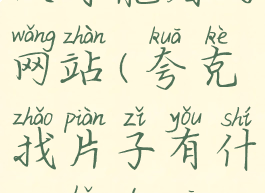 wǎng zhàn kuā kè
网站(夸克
zhǎo piàn zǐ yǒu shí
找片子有什